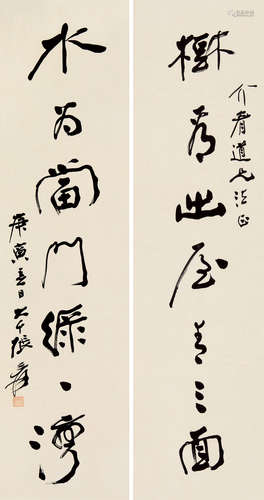 樹為出屋青三面
介眉道兄法正
水為當門綠一灣
庚寅春日大千張爰